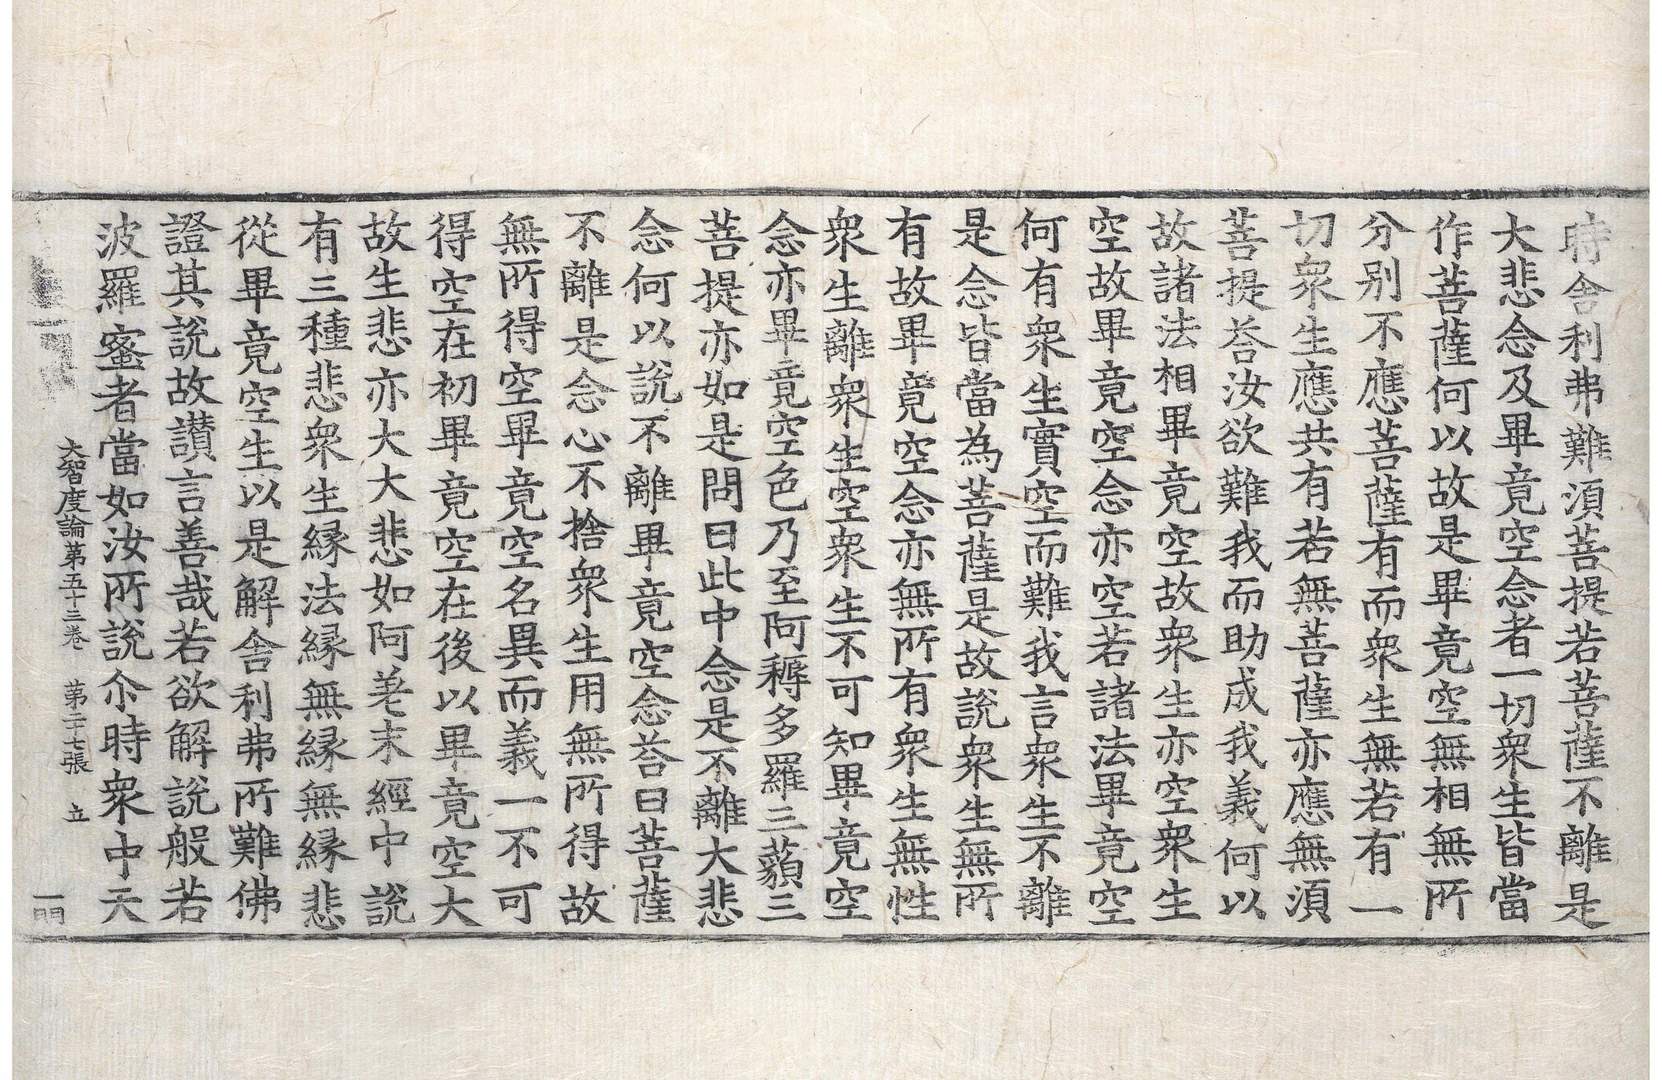 時舍利弗難湏菩提若菩薩不離是
大悲念及畢竟空念者一切衆生皆當
作菩薩何以故是畢竟空無相無所
分别不應菩薩有而衆生無若有一
切衆生應共有若無菩薩亦應無湏
菩提荅汝欲難我而助成我義何以
故諸法相畢竟空故衆生亦空衆生
空故畢竟空念亦空若諸法畢竟空
何有衆生實空而難我言衆生不離
是念皆當為菩薩是故說衆生無所
有故畢竟空念亦無所有衆生無性
衆生離衆生空衆生不可知畢竟空
念亦畢竟空色乃至阿耨多羅三藐三
菩提亦如是問曰此中念是不離大悲
念何以說不離畢竟空念荅曰菩薩
不離是念心不捨衆生用無所得故
無所得空畢竟空名異而義一不可
得空在初畢竟空在後以畢竟空大
故生悲亦大大悲如阿差末經中說
有三種悲衆生緣法緣無緣無緣悲
從畢竟空生以是解舍利弗所難佛
證其說故讃言善哉若欲解說般若
波羅蜜者當如汝所說尒時衆中天
大智度論第五十三卷 第二十七張 立